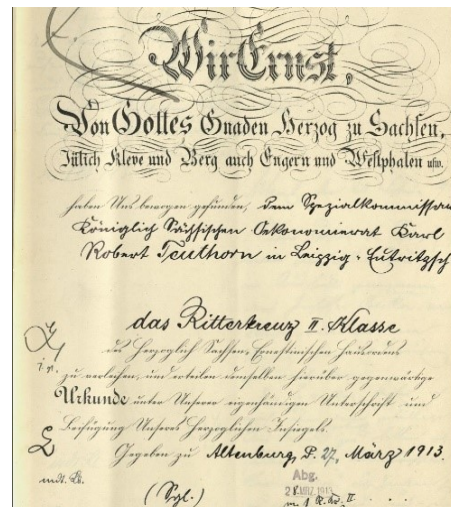 Wir Ernst,
Von Gottes Gnaden Herzog zu Sachsen,
Jülich Kleve und Berg auch Engern und Westphalen usw.
haben Uns bewogen gefunden, dem Spezialkommissar
Königlich Sächsischen Oekonomierat Karl
Robert Teulhorn in Leipzig-Eutritzsch
das Ritterkreuz II. Klasse
des Herzoglich Sachsen-Ernestinischen Hausordens
zu verleihen, und erteilen demselben hierüber gegenwärtige
Urkunde unter Unserer eigenhändigen Unterschrift und
Beifügung Unseres Herzoglichen Insiegels.
Gegeben zu Altenburg, d. 27. März 1913.
Abg.
(Sgl.)